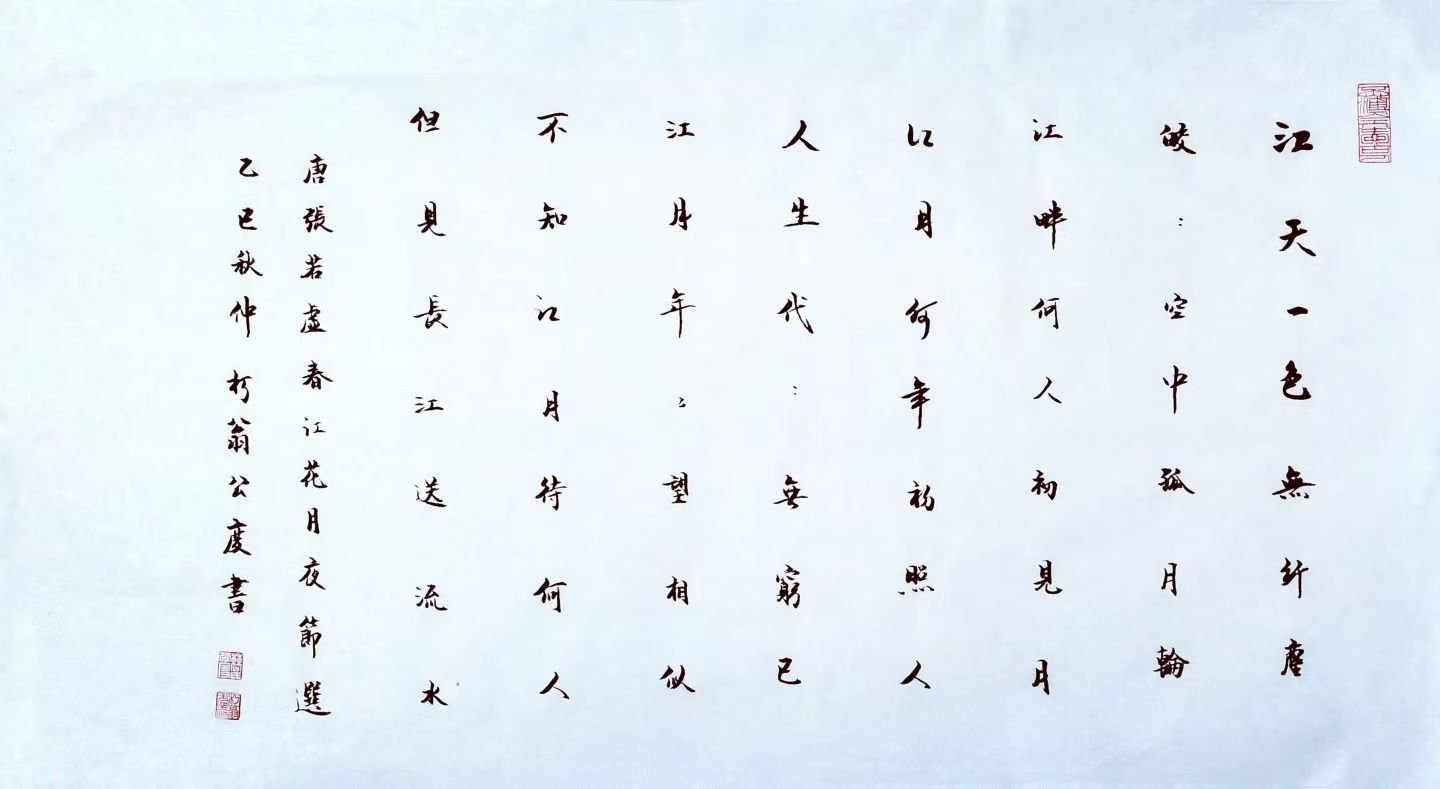 江天一色無纤塵
皎：空中孤月輪
江畔何人初見月
江月何年初照人
人生代：無窮已
江月年：望相似
不知江月待何人
但見長江送流水
唐張若虛春江花月夜節選
乙巳秋仲 朽翁公度書